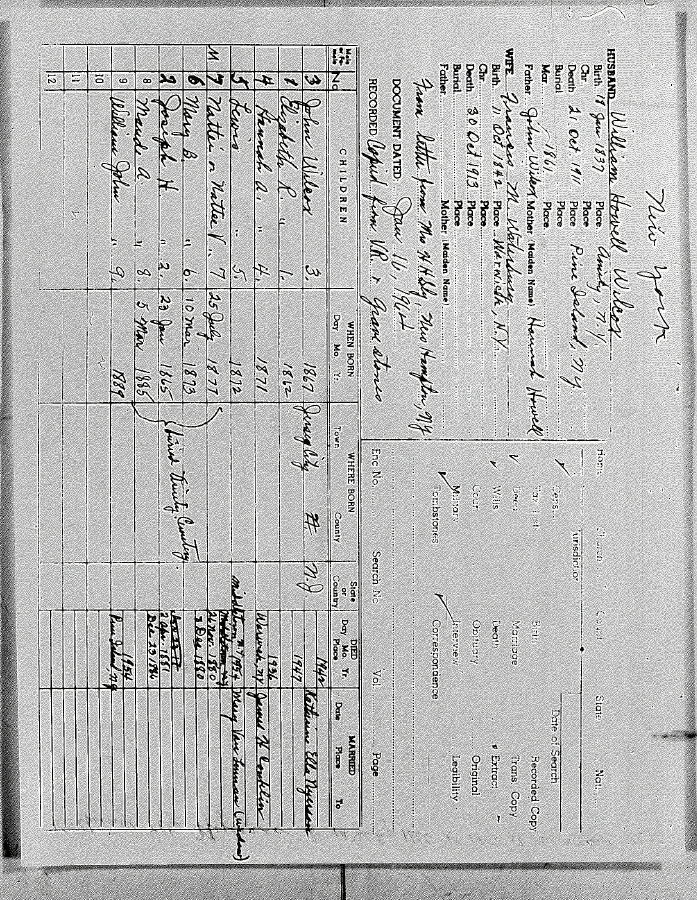 New York
HUSBAND William Howell Wilcox
Birth 18 Jan 1837 Place Amity, N.Y.
Chr. Place
Death 21 Oct. 1911 Place Pine Island, N.Y.
Burial Place
Mar. 1861 Place
Father John Wilcox Mother (Maiden Name) Hannah Howell
WIFE Frances M. Waterbury
Birth 11 Oct 1842 Place Warwick, N.Y.
Chr. Place
Death 30 Oct 1913 Place
Burial Place
Father Mother (Maiden Name)
From letter from Mrs New Hampton, NY
DOCUMENT DATED: Jan 16, 1962
RECORDED Copied from V.R. & Grave stones
Home Church Court State Nat.
Jurisdiction Date of Search
Cens. Birth Recorded Copy
Marriage Trans. Copy
Deed Death Extract
Wills Obituary Original
Court Interview Legibility
Militar Correspondence
Tombstones
Enc No. Search No. Vol Page
Male or Fe-male No. CHILDREN WHEN BORN Day Mo. Yr. WHERE BORN Town County State or Country DIED Day Mo. Yr. Place MARRIED Date Place To
3 John Wilcox 3. 1867 Jersey City N.J. 1942 Katherine Ella Ryerson
1 Elizabeth R. " 1. 1862 1947
4 Hannah A. " 4. 1871 1936 Warwick, NY James H Conklin
5 Lewis " 5. 1872 Middletown N.Y. 1954 Mary Van (widow)
M 7 Nattie or Nattie V. " 7 25 July 1877 26 Nov. 1880
6 Mary B. " 6. 10 Mar 1873 3 Dec. 1880
2 Joseph H " 2. 23 Jan 1865 2 Apr. 1881
8 Maud A " 8. 5 Mar 1885 Dec 23
9 William John " 9. 1889 1954 Pine Island, N.Y.
(buried Trinity Cemetery.
10
11
12